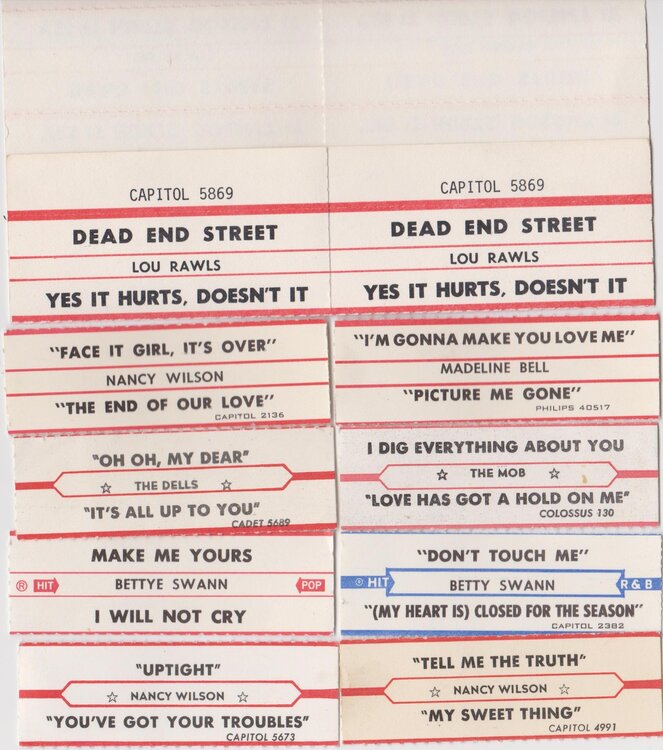 CAPITOL 5869
DEAD END STREET
LOU RAWLS
YES IT HURTS, DOESN'T IT
CAPITOL 5869
DEAD END STREET
LOU RAWLS
YES IT HURTS, DOESN'T IT
"FACE IT GIRL, IT'S OVER"
NANCY WILSON
"THE END OF OUR LOVE"
CAPITOL 2136
"I'M GONNA MAKE YOU LOVE ME"
MADELINE BELL
"PICTURE ME GONE"
PHILIPS 40517
"OH OH, MY DEAR"
☆ THE DELLS ☆
"IT'S ALL UP TO YOU"
CADET 5689
I DIG EVERYTHING ABOUT YOU
☆ THE MOB ☆
"LOVE HAS GOT A HOLD ON ME"
COLOSSUS 130
MAKE ME YOURS
® HIT BETTYE SWANN POP
I WILL NOT CRY
"DON'T TOUCH ME"
® HIT BETTY SWANN R & B
"(MY HEART IS) CLOSED FOR THE SEASON"
CAPITOL 2382
"UPTIGHT"
☆ NANCY WILSON ☆
"YOU'VE GOT YOUR TROUBLES"
CAPITOL 5673
"TELL ME THE TRUTH"
☆ NANCY WILSON ☆
"MY SWEET THING"
CAPITOL 4991